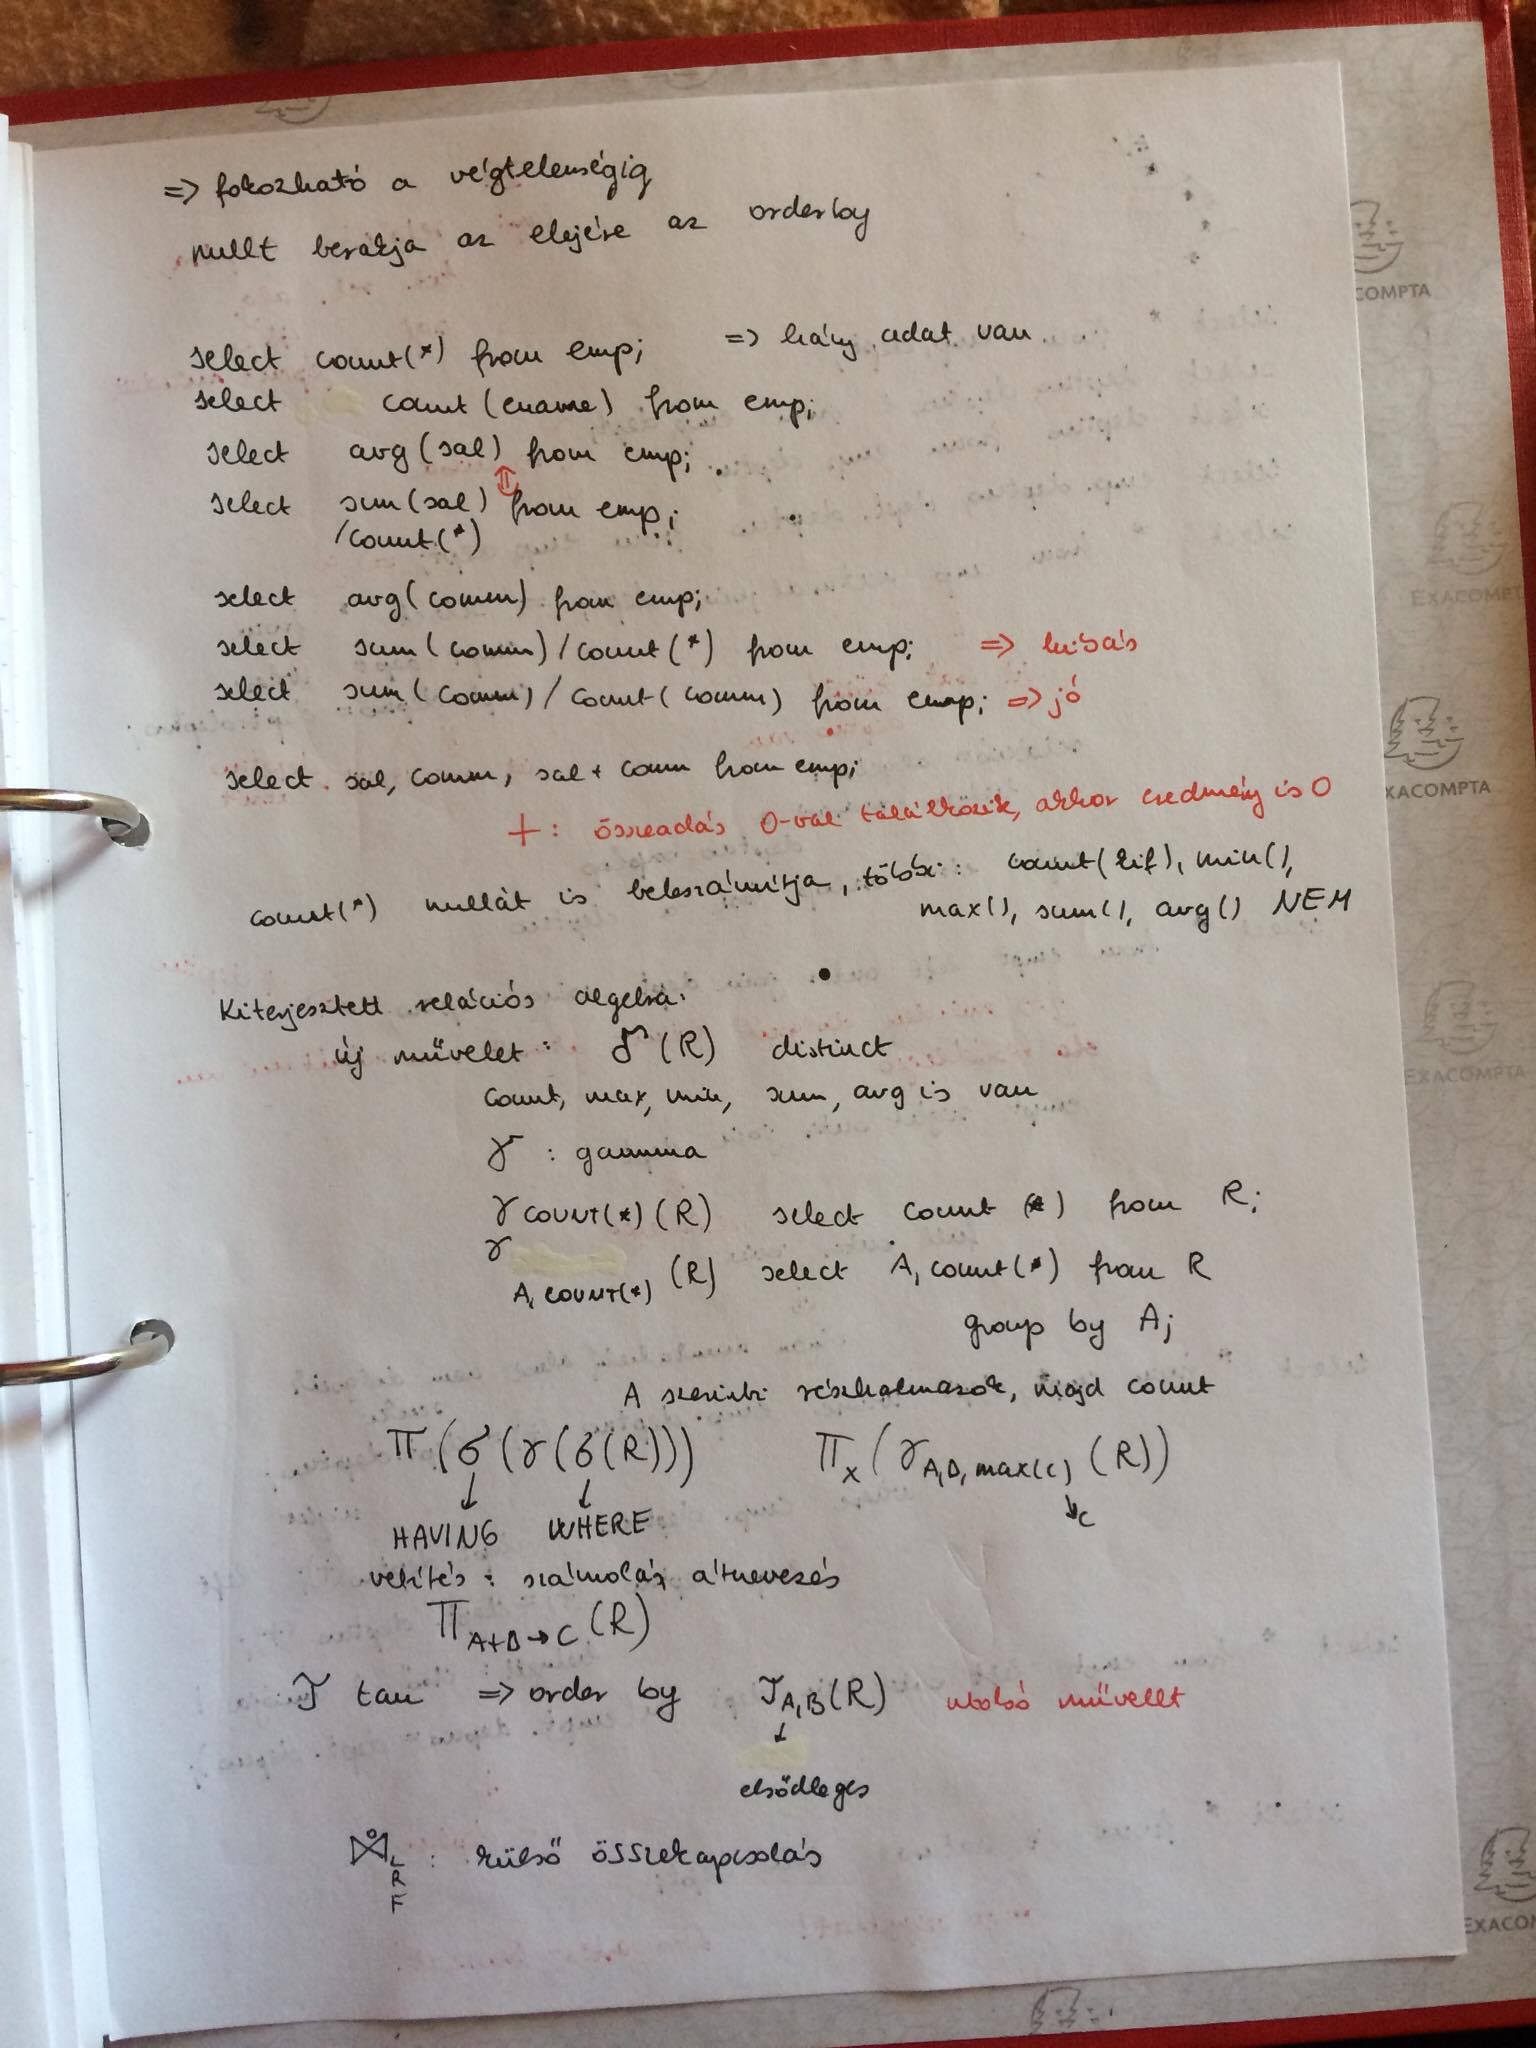 => fokozható a végtelenségig
nullt berakja az elejére az orderby
select count(*) from emp; => hány adat van
select count(ename) from emp;
select avg(sal) from emp;
⇕
select sum(sal) from emp;
/count(*)
select avg(comm) from emp;
select sum(comm)/count(*) from emp; => hibás
select sum(comm)/count(comm) from emp; => jó
select sal, comm, sal+comm from emp;
+: összeadás 0-val találkozik, akkor eredmény is 0
count(*) nullát is beleszámítja, többi: count(kif), min(),
max(), sum(), avg() NEM
Kiterjesztett relációs algebra:
új művelet: δ(R) distinct
count, max, min, sum, avg is van
γ : gamma
γ COUNT(*) (R) select count(*) from R;
γ A, COUNT(*) (R) select A, count(*) from R
group by A;
A szerinti részhalmazok, majd count
π(σ(γ(σ(R))) πx(γA,B,max(c) (R))
↓ ↓ ↘c
HAVING WHERE
vetítés: számolás átnevezés
πA+B→C (R)
τ tau => order by τA,B(R) utolsó művellt
↓
elsődleges
⋈° L R F : külső összekapcsolás
COMPTA
EXACOMPTA
XACOMPTA
EXACOMPTA
EXACON